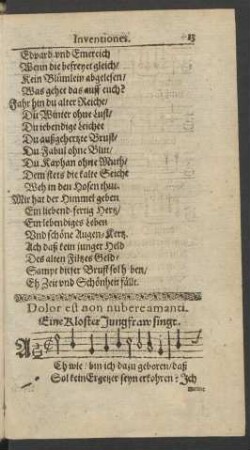 Inventiones. 13
Edvard vnd Emereich
Wenn die befreyet gleich/
Kein Blümlein abgelesen/
Was gehet das auß euch?
Fahr hin du alter Reiche/
Du Winter ohne Lust/
Du lebendige Leiche
Du außgehertzte Brust/
Du Fabul ohne Blut/
Du Kaphan ohne Muth/
Dem stets die kalte Seiche
Weh in den Hosen thut.
Mir hat der Himmel geben
Ein liebend-fertig Hertz/
Ein lebendiges Leben
Vnd schöne Augen-Kertz.
Ach daß kein junger Held
Des alten Filtzes Geld
Sampt dieser Brust sol h ben,
Eh Zeit vnd Schönheit fällt.
Dolor est non nubere amanti.
Eine Kloster Jungfraw singt.
A
Ch wie/ bin ich dazu geboren/ daß
Sol kein Ergetzer seyn erkohren: Ich